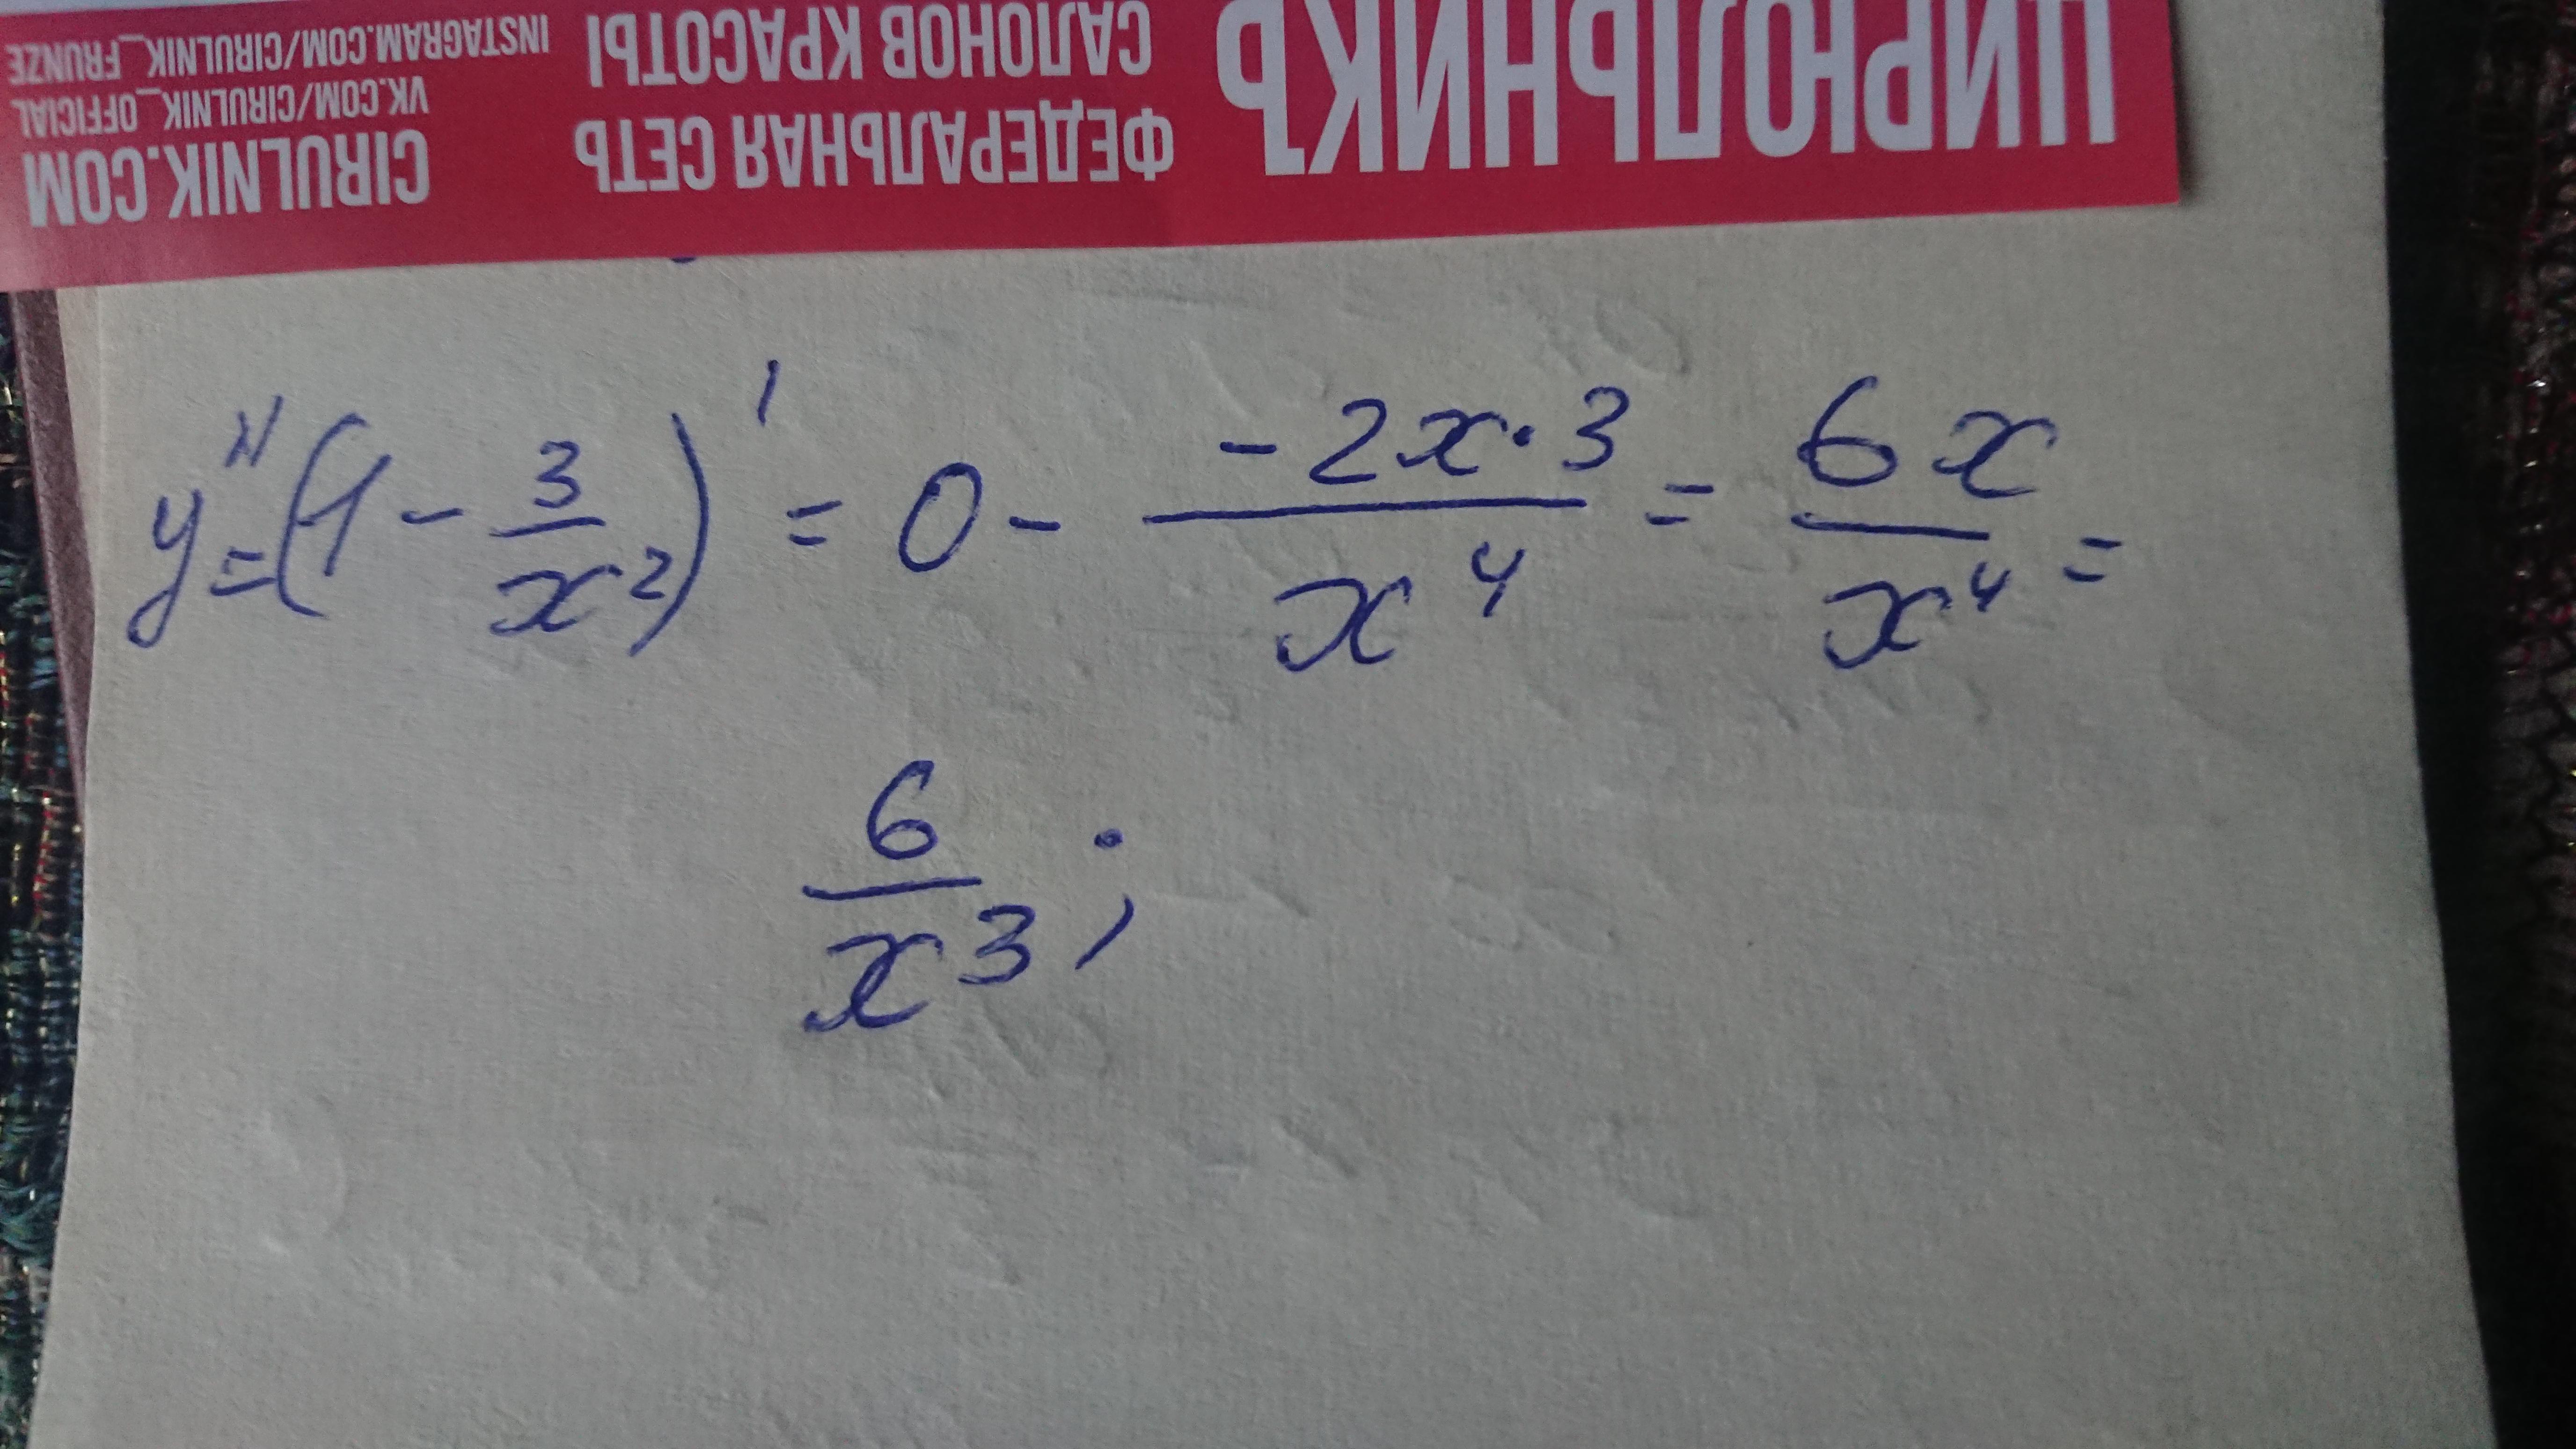 ЦИРЮЛЬНИКЪ
ФЕДЕРАЛЬНАЯ СЕТЬ
САЛОНОВ КРАСОТЫ
CIRULNIK.COM
VK.COM/CIRULNIK_OFFICIAL
INSTAGRAM.COM/CIRULNIK_FRUNZE
y'' = (1 - 3/x²)' = 0 - (-2x·3)/x⁴ = 6x/x⁴ =
6/x³ ;